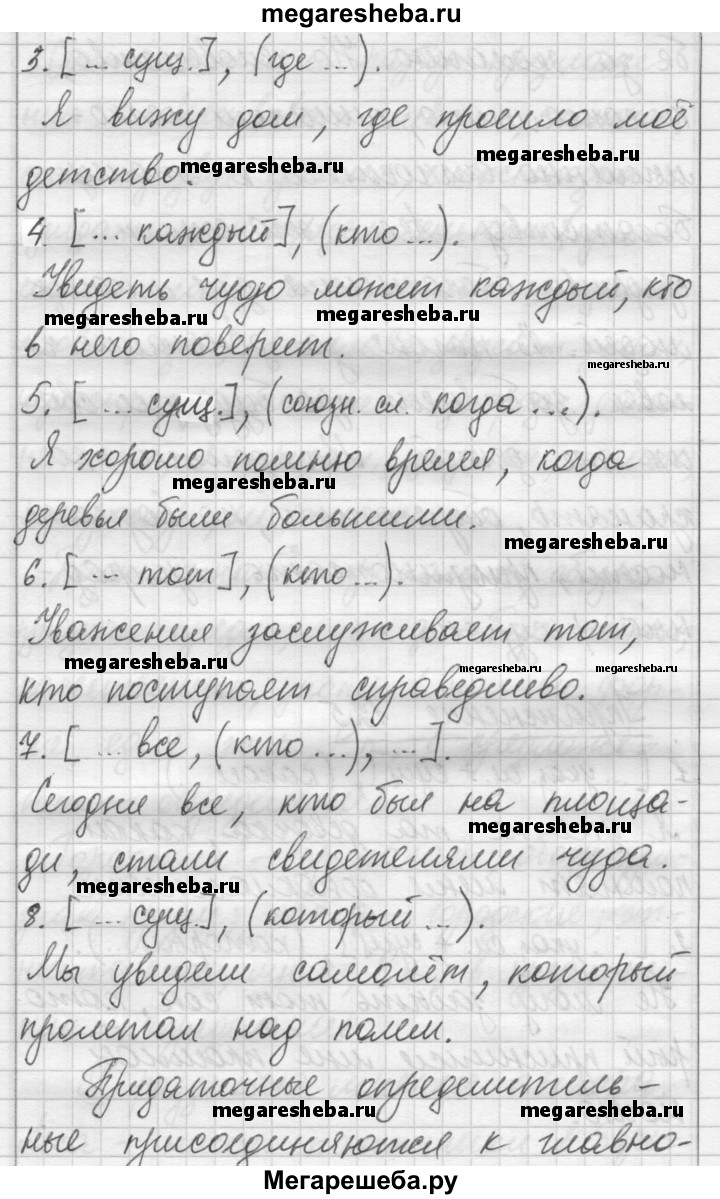 megaresheba.ru
3. [... сущ.], (где ...).
Я вижу дом, где прошло моё
megaresheba.ru
megaresheba.ru
детство.
4. [... каждый], (кто ...).
Увидеть чудо может каждый, кто
megaresheba.ru
megaresheba.ru
в него поверит.
megaresheba.ru
5. [ ... сущ.], (союзн. сл. когда ...).
Я хорошо помню время, когда
megaresheba.ru
деревья были большими.
megaresheba.ru
6. [ ... тот], (кто ...).
Уважения заслуживает тот,
megaresheba.ru
megaresheba.ru
megaresheba.ru
кто поступает справедливо.
7. [ ... все, (кто ...), ...].
Сегодня все, кто был на площа-
megaresheba.ru
ди, стали свидетелями чуда.
megaresheba.ru
8. [ ... сущ.], (который ...).
Мы увидели самолёт, который
пролетал над полем.
Придаточные определитель-
megaresheba.ru
megaresheba.ru
ные присоединяются к главно-
Мегарешеба.ру